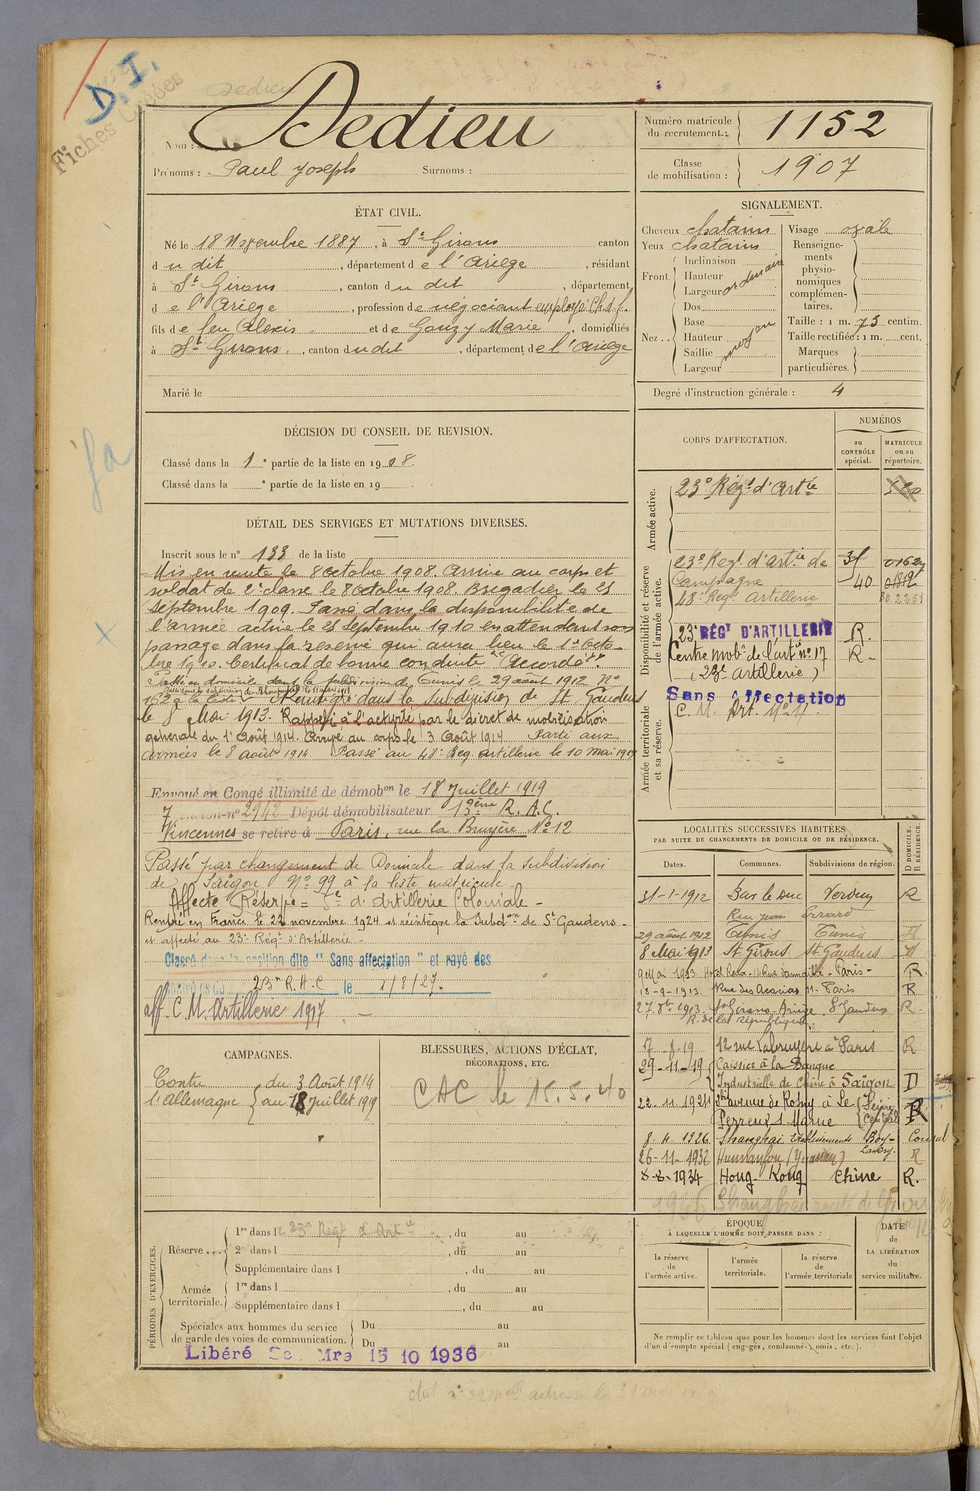 D. I.
Fiches
Dedieu
Nom :
Dedieu
Prénoms : Paul Joseph Surnoms :
Numéro matricule du recrutement : 1152
Classe de mobilisation : 1907
ÉTAT CIVIL.
Né le 18 Novembre 1887, à St Girons canton
du dit, département de l'Ariège, résidant
à St Girons, canton du dit, département
de l'Ariège, profession de négociant employé
fils de feu Alexis et de Gouzy Marie, domiciliés
à St Girons, canton du dit, département de l'Ariège
Marié le
SIGNALEMENT.
Cheveux chatains Visage ovale
Yeux chatains
Front. Inclinaison
Hauteur
Largeur
ordinaire
Nez. Dos
Base
Hauteur
Saillie
Largeur
moyen
Renseignements physionomiques complémentaires.
Taille : 1 m. 73 centim.
Taille rectifiée : 1 m. cent.
Marques particulières.
Degré d'instruction générale : 4
DÉCISION DU CONSEIL DE REVISION.
Classé dans la 1e partie de la liste en 1908.
Classé dans la e partie de la liste en 19
DÉTAIL DES SERVICES ET MUTATIONS DIVERSES.
Inscrit sous le n° 133 de la liste
Mis en route le 8 Octobre 1908. Arrivé au corps et
soldat de 2e classe le 8 Octobre 1908. Brigadier le 25
Septembre 1909. Passé dans la disponibilité de
l'armée active le 25 Septembre 1910 en attendant son
passage dans la réserve qui aura lieu le 1er Octo-
bre 1910. Certificat de bonne conduite "Accordé"
de Tunis le 29 août 1912 No
dans la subdivision de St Gaudens
le 8 Mai 1913. Rappelé à l'activité par le décret de mobilisation
générale du 1er Août 1914. Arrivé au corps le 3 Août 1914 Parti aux
Armées le 8 août 1914. Passé au 48e Reg. artillerie le 10 mai 1919
Envoyé en Congé illimité de démobon le 18 Juillet 1919
n° 2942 Dépôt démobilisateur 13ème R.A.C.
Vincennes se retire à Paris, rue la Bruyère N° 12
Passé par changement de Domicile dans la subdivision
de Saïgon No 99 à la liste matricule
Affecté Réserve = 5e d'Artillerie Coloniale -
Rentré en France le 22 novembre 1924 et réintègre la Subdon de St Gaudens -
et affecté au 23e Régt d'Artillerie -
Classé dans la position dite " Sans affectation " et rayé des
23me R.A.C le 1/8/27.
aff. C.M. Artillerie 1917
CORPS D'AFFECTATION.
NUMÉROS
au CONTRÔLE spécial.
MATRICULE ou au répertoire.
Armée active.
23e Régt d'Artie
Disponibilité et réserve de l'armée active.
23e Regt d'artie de Campagne
40
48e Regt artillerie
23e RÉGT D'ARTILLERIE R.
Centre mobe de l'artie n° 17 R -
(23e artillerie)
Armée territoriale et sa réserve.
Sans Affectation
C. M. Art. N° 17.
LOCALITÉS SUCCESSIVES HABITÉES
PAR SUITE DE CHANGEMENTS DE DOMICILE OU DE RÉSIDENCE.
Dates. Communes. Subdivisions de région. D DOMICILE. R RÉSIDENCE.
31-1-1912 Bar le Duc Verdun R
29 août 1912 Tunis Tunis
8 Mai 1913 St Girons St Gaudens
Paris - R
18-9-1913 Rue des Acacias Paris R
1913 St Girons Ariège St Gaudens R
R. de la République
7-8-19 12 rue Labruyère à Paris R
29-11-19 Caissier à la Banque
Industrielle de Chine à Saïgon D
22-11-1924 avenue de Rosny à Le Seine
Perreux s. Marne Central R
8-4-1926 Shanghai Etablissements Consul
26-11-1932 (Yunnan) R
8-8-1934 Hong-Kong Chine R.
CAMPAGNES.
Contre l'Allemagne
du 3 Août 1914
au 18 Juillet 1919
BLESSURES, ACTIONS D'ÉCLAT,
DÉCORATIONS, ETC.
CAC le 15.5.40
PÉRIODES D'EXERCICES.
Réserve 1re dans le 23e Régt d'Artie, du au
2e dans l , du au
Supplémentaire dans l , du au
Armée territoriale. 1re dans l , du au
Supplémentaire dans l , du au
Spéciales aux hommes du service de garde des voies de communication. Du au
Du au
Libéré Mre 15 10 1936
ÉPOQUE
À LAQUELLE L'HOMME DOIT PASSER DANS :
la réserve de l'armée active.
l'armée territoriale.
la réserve de l'armée territoriale
DATE de LA LIBÉRATION du service militaire.
Ne remplir ce tableau que pour les hommes dont les services font l'objet
d'un décompte spécial (engagés, condamnés, omis, etc.).